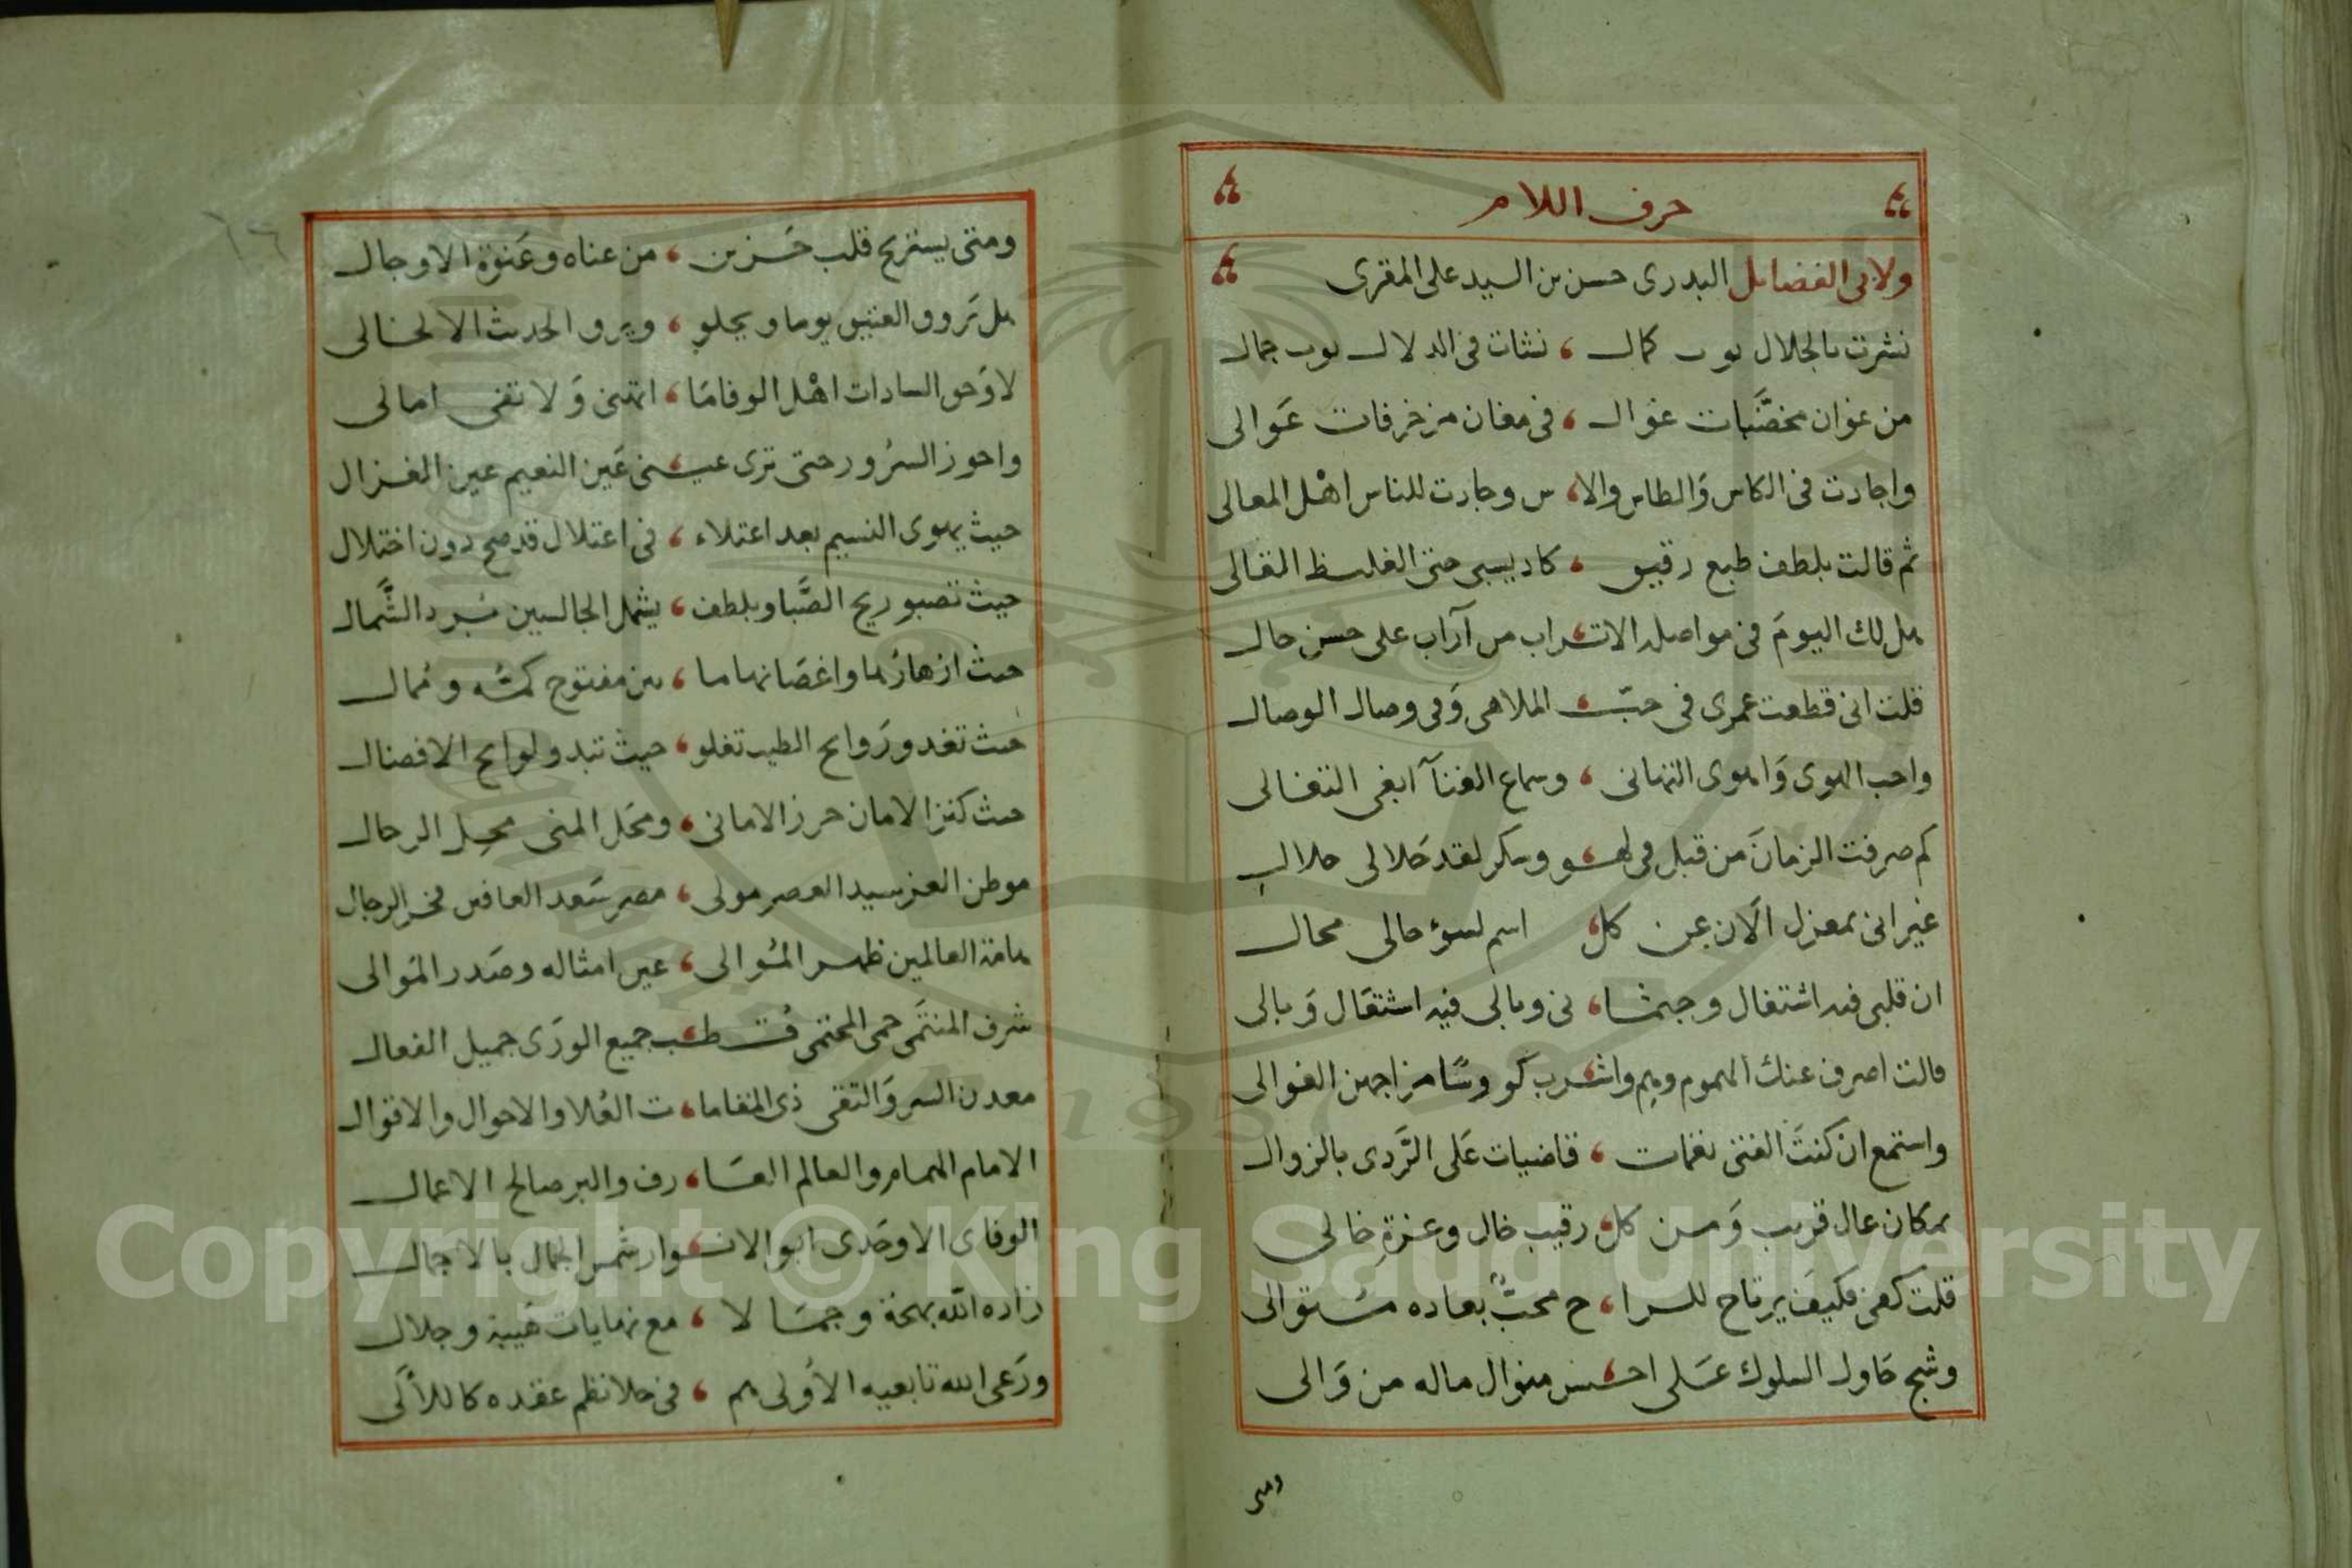 حرف اللام
ولابى الفضايل البدرى حسن بن السيد على المقرى
نشرت بالجلال ثوب كمال ، نشات فى الدلال ثوب جمال
من غوان مخضبات غوال ، فى مغان مزخرفات عَوالى
واجادت فى الكاس وَالطاس والا ، س وجادت للناس اهْل المعالى
ثم قالت بلطف طبع رقيق ، كاد يسبى حتى الغليظ القالى
هل لك اليومَ فى مواصلة الاتراب من آراب على حسن حال
قلت انى قطعت عمرى فى حبّ ، الملاهى وَفى وصال الوصال
واحب الهوى وَاهوى التهانى ، وسماع الغنآ ابغى التغالى
كم صرفت الزمانَ من قبل فى لهو وسكر لقد حَلا لى حلالِ
غير انى بمعزل الآن عن كل ، اسم لسوء حالى محال
ان قلبى فيه اشتغال وجثما ، نى وبالى فيه اشتقال وَبالى
قالت اصرف عنك الهموم وهِم واشرب كووسًا مزاجهن الغوالى
واستمع ان كنتَ الفتى نغمات ، قاضيات عَلى الرَّدى بالزوال
بمكان عال قريب وَمن كل رقيب خال وعزةِ خالى
قلت كفى فكيفَ يرتاح للرا ، ح محبٌّ بعاده متوالى
وشج حَاول السلوك عَلى احسن منوال ماله من وَالى
ومتى
ومتى يستريح قلب حَزين ، من عناه وعَنوة الاوجال
هل تَروق العتيق يوما ويحلو ، ويرق الحديث الا لخالى
لا وَحق السادات اهْل الوفا مَا ، انثنى وَلا تفى امالى
واحوز السرُور حتى ترى عينى عَين النعيم عين الغزال
حيث يهوى النسيم بعد اعتلاء ، فى اعتلال قد صح دون اختلال
حيث تصبو ريح الصَّبا وبلطف ، يشمل الجالسين برد الشَّمال
حيث ازهارُها واغصَانها ما ، بين مفتوح كمّه ومُمال
حيث تغدو رَوايح الطيب تغلو ، حيث تبدو لوايح الافضال
حيث كنز الامان حرز الامانى ، ومحَل المنى محِل الرحال
موطن العز سيد العصر مولى ، مصر سَعد العافين فخر الرجال
هامة العالمين ظهر المُوالى ، عين امثاله وصَدر المَوالى
شرف المنتمَى حمى المحتمى قُطب جميع الورَى جميل الفعال
معدن السر وَالتقى ذى المقاما ، ت العُلا والاحوال والاقوال
الامام الهمام والعالم العَا ، رف والبر صالح الاعمال
الوفاى الاوحَدى ابو الانوار شمس الجمال بالاجمال
زاده الله بهجة وجمَالا ، مع نهايات هَيبة وجلال
ورَعى الله تابعيه الاوُلى هم ، فى حلا نظم عقده كاللآلى